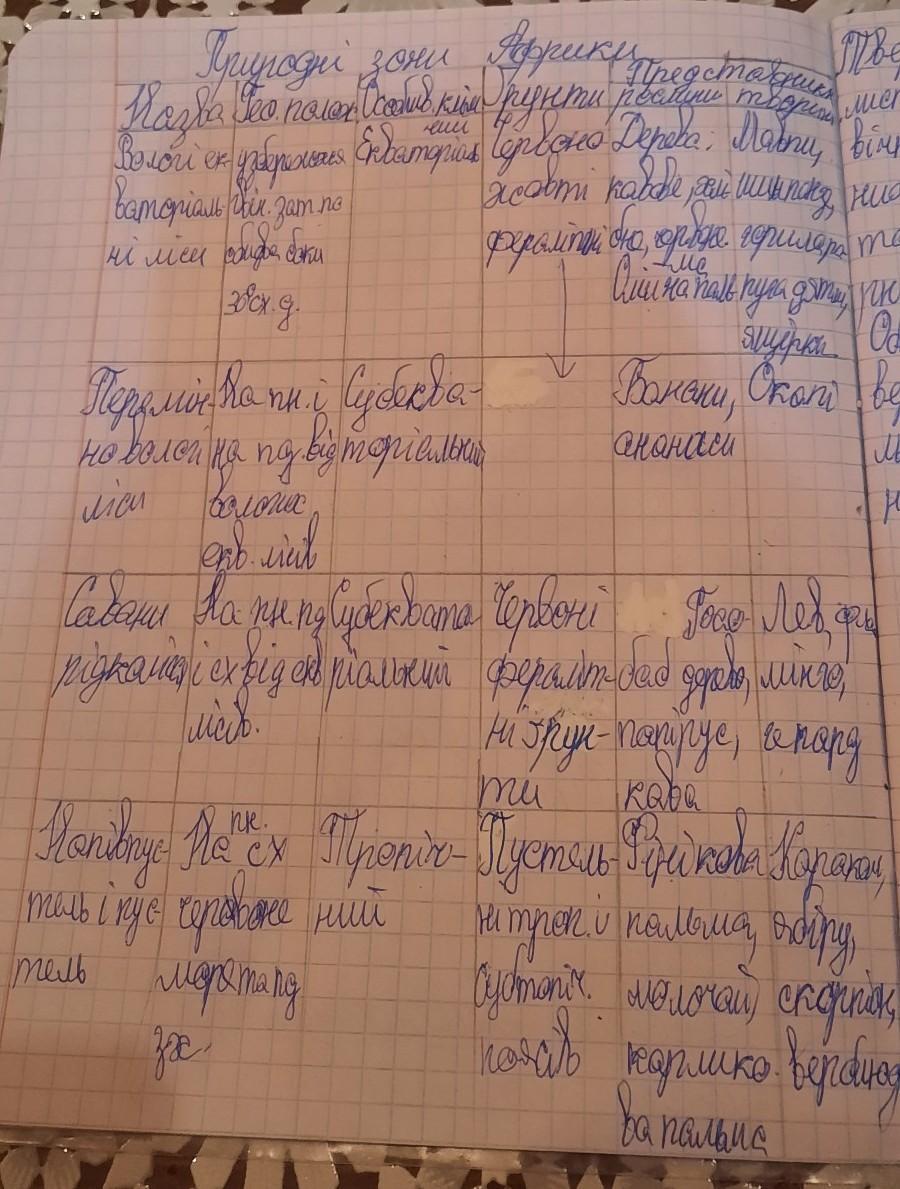 Природні зони Африки
Назва Гео. полож Особив. кліма Ґрунти Представники рослини тварини
Вологі ек-
ваторіаль-
ні ліси
узбережжя
Гвін. зат. по
обидва боки
30° сх. д.
Екваторіаль
ний
Червоно
жовті
фералітні
Дерева:
кавове,
бно, червоне.
Олійна паль-
ма
Мавпи,
шимпанзе,
горила,
ящірки
Перемін-
новологі
ліси
На пн. і
на пд. від
волога
екв. лісів
Субеква-
торіальний
Банани,
ананаси
Окапі
Савани
рідколісся
На пн. пд
і сх від екв
лісів.
Субеквата
ріальний
Червоні
фераліт-
ні ґрун-
ти
Баоо-
баб дерево,
папірус,
кава
Лев, фла
мінго,
гепард
Напівпус-
тель і пус-
тель
На пн.
сх
червоне
моря та пд
зх.
Тропіч-
ний
Пустель-
ні троп. і
Субтопіч.
поясів
Фінікова
пальма,
молочай,
карлико-
ва пальма
Каракал,
скорпіон,
верблюд
Тве
лист
він
ве